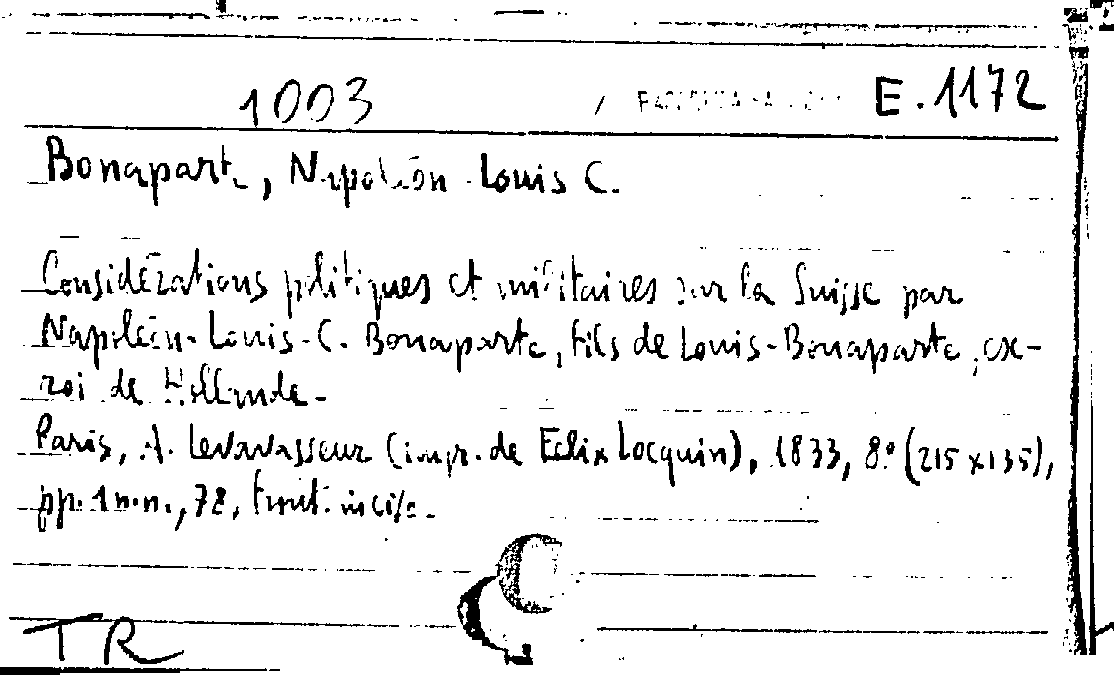 1003 / E.1172
Bonaparte, Napoléon-Louis C.
Considérations politiques et militaires sur la Suisse par
Napoléon-Louis-C. Bonaparte, fils de Louis-Bonaparte, ex-
roi de Hollande.
Paris, A. Levavasseur (impr. de Félix Locquin), 1833, 8º (215x135),
pp. 1 n.n., 78, front. incis.
TR